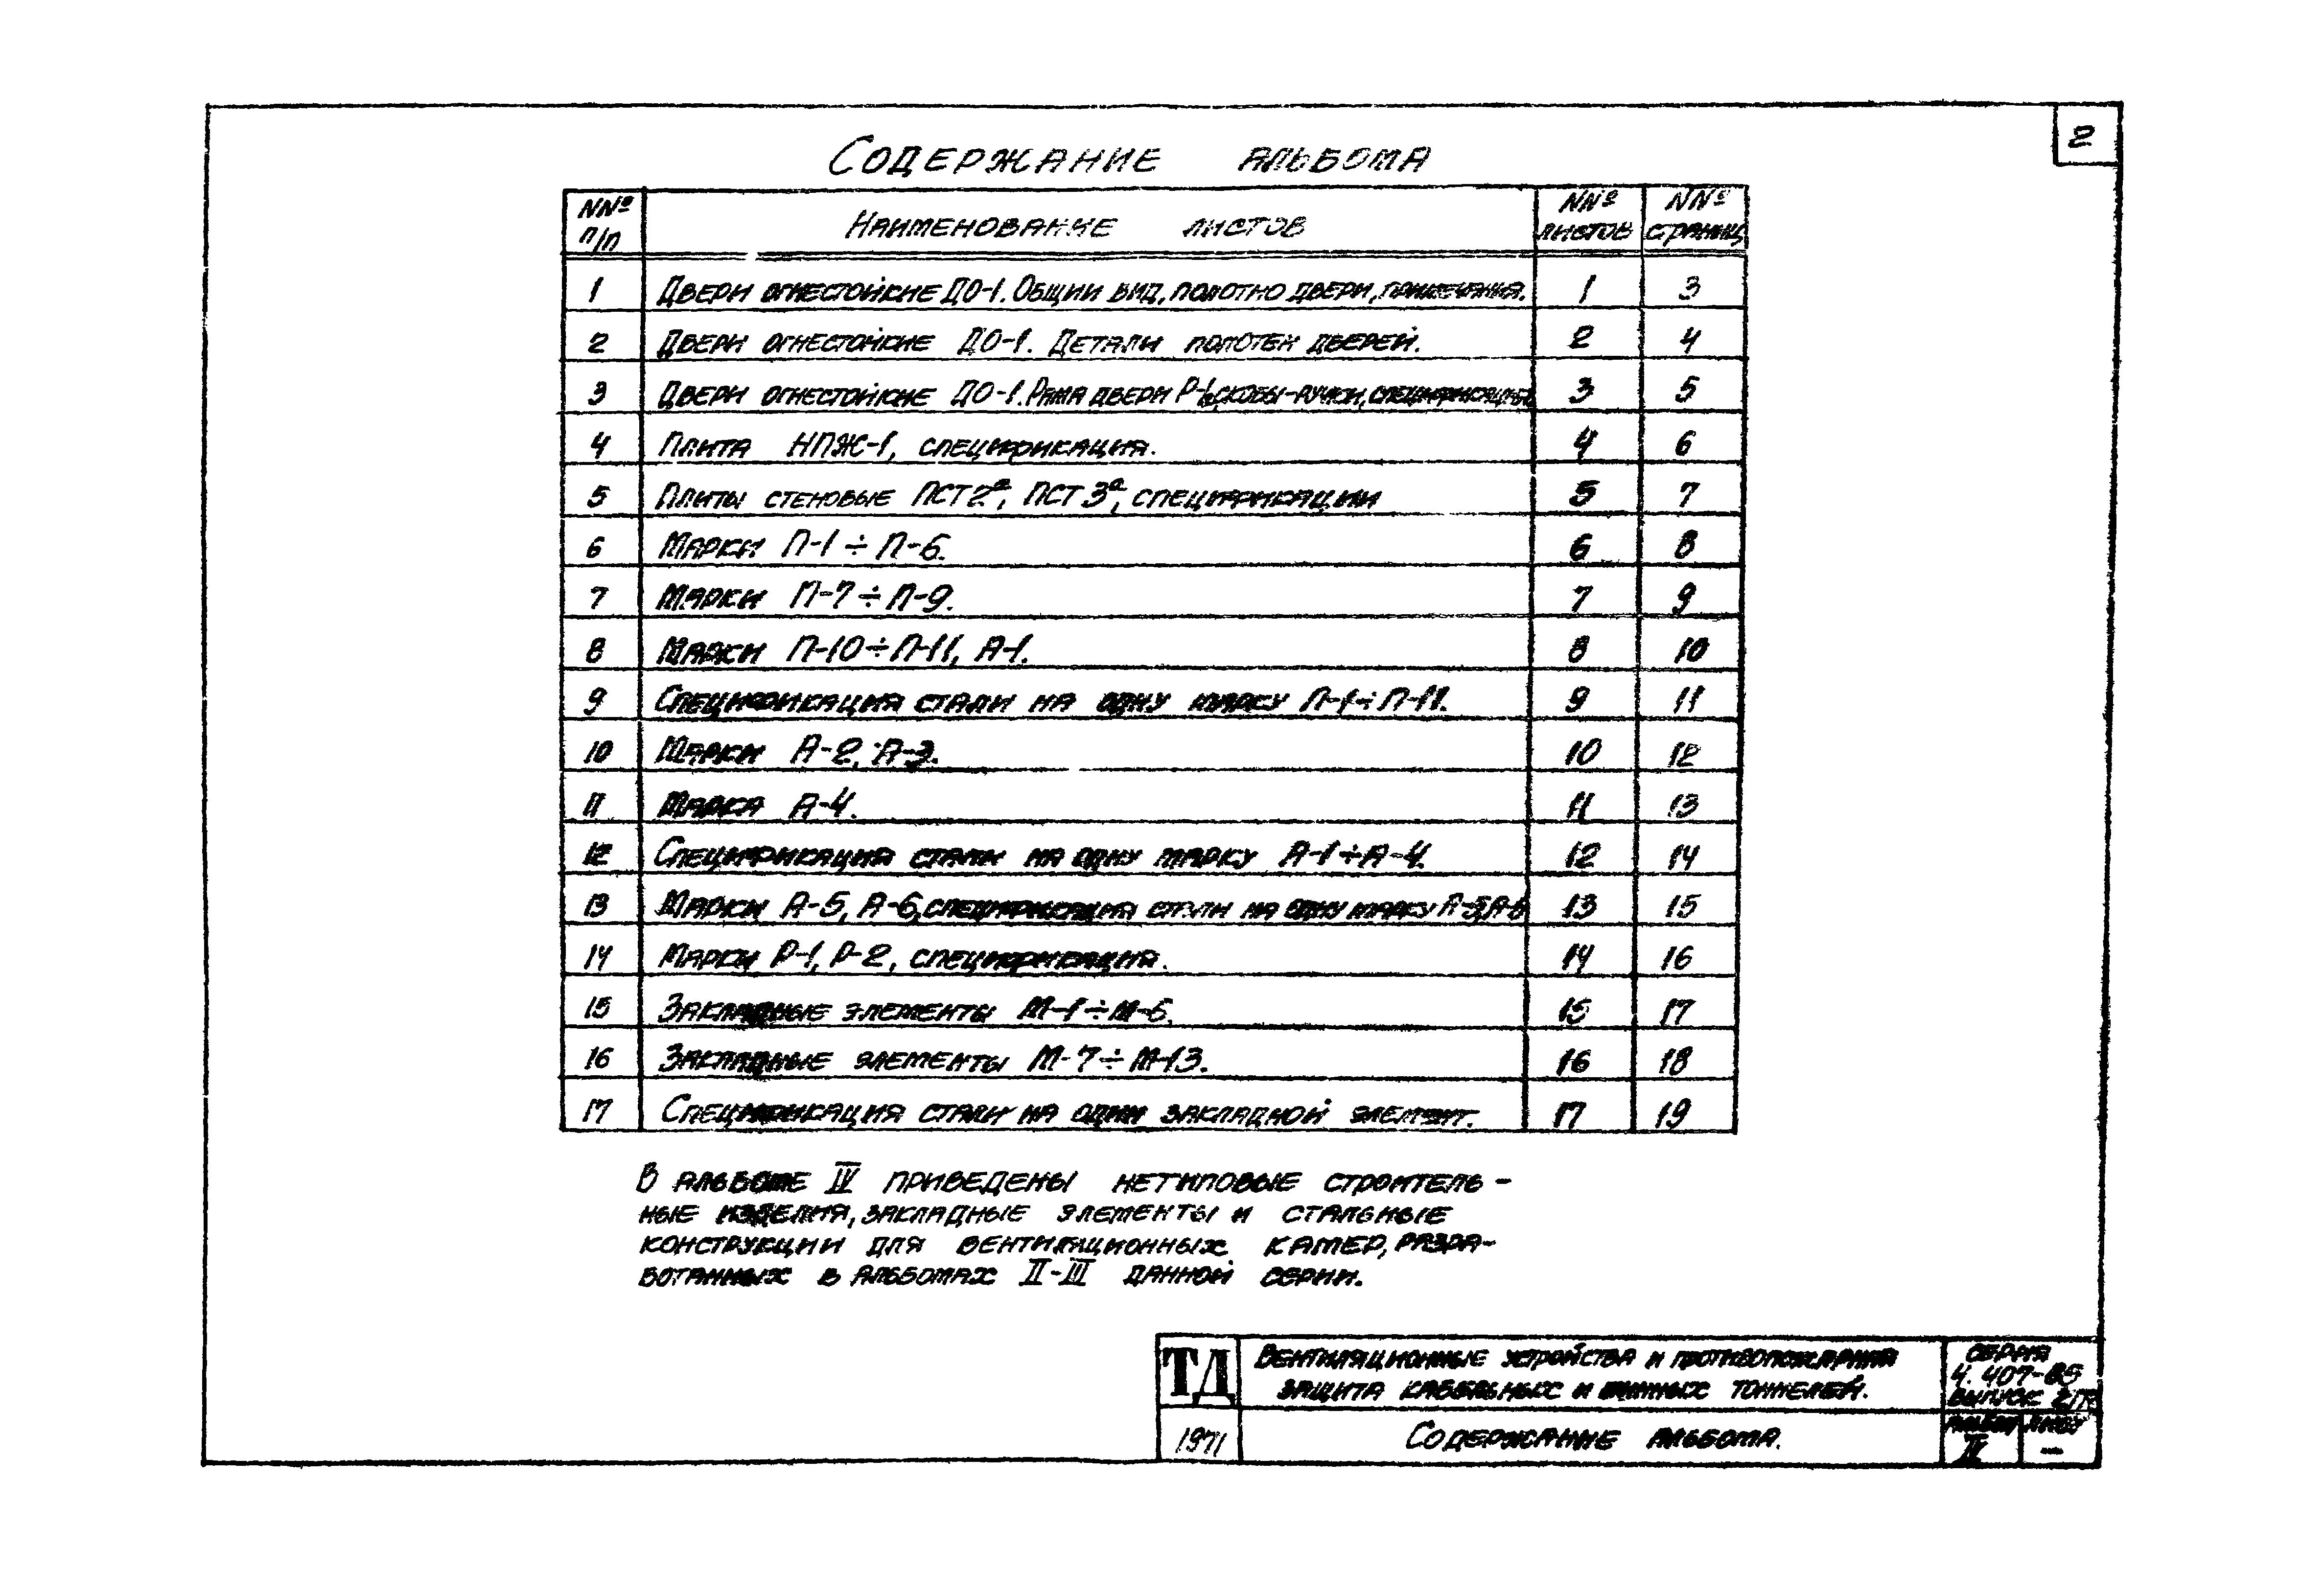 2
Содержание альбома
NNº п/п Наименование листов NNº листов NNº страниц
1 Двери огнестойкие ДО-1. Общий вид, полотно двери, примечания. 1 3
2 Двери огнестойкие ДО-1. Детали полотен дверей. 2 4
3 Двери огнестойкие ДО-1. Рама двери Р-1, скобы-ручки, спецификации 3 5
4 Плита НПЖ-1, спецификация. 4 6
5 Плиты стеновые ПСТ2ª, ПСТ3ª, спецификации 5 7
6 Марки П-1 ÷ П-6. 6 8
7 Марки П-7 ÷ П-9. 7 9
8 Марки П-10 ÷ П-11, А-1. 8 10
9 Спецификация стали на одну марку П-1 ÷ П-11. 9 11
10 Марки А-2, А-3. 10 12
11 Марка А-4. 11 13
12 Спецификация стали на одну марку А-1 ÷ А-4. 12 14
13 Марки А-5, А-6, спецификация стали на одну марку А-5, А-6 13 15
14 Марки Р-1, Р-2, спецификация. 14 16
15 Закладные элементы М-1 ÷ М-6. 15 17
16 Закладные элементы М-7 ÷ М-13. 16 18
17 Спецификация стали на один закладной элемент. 17 19
В альбоме IV приведены нетиповые строитель-
ные изделия, закладные элементы и стальные
конструкции для вентиляционных камер, разра-
ботанных в альбомах II-III данной серии.
ТД Вентиляционные устройства и противопожарная
защита кабельных и шинных тоннелей.
Серия
4.407-
выпуск
1971 Содержание альбома.
Альбом IV Лист –